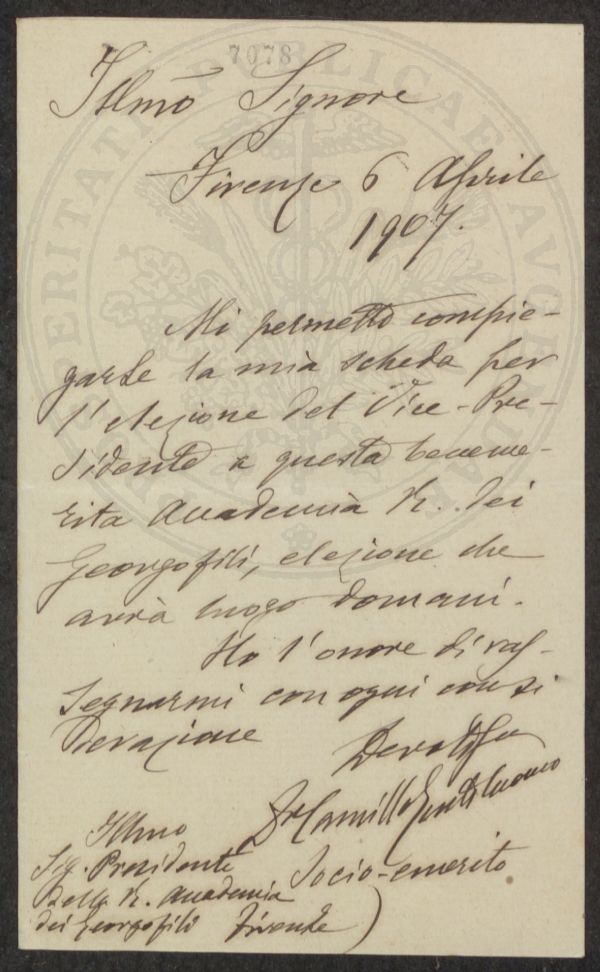 7078
PROSPERITATI PUBLICAE AUGENDAE
Illmo Signore
Firenze 6 Aprile
1907.
Mi permetto compie-
garLe la mia scheda per
l'elezione del Vice-Pre-
sidente a questa beneme-
rita Accademia R. dei
Georgofili, elezione che
avrà luogo domani.
Ho l'onore di ras-
segnarmi con ogni consi
derazione
Devotisso
Dr Camillo Gentiluomo
Socio-emerito
Illmo
Sig. Presidente
della R. Accademia
dei Georgofili Firenze)